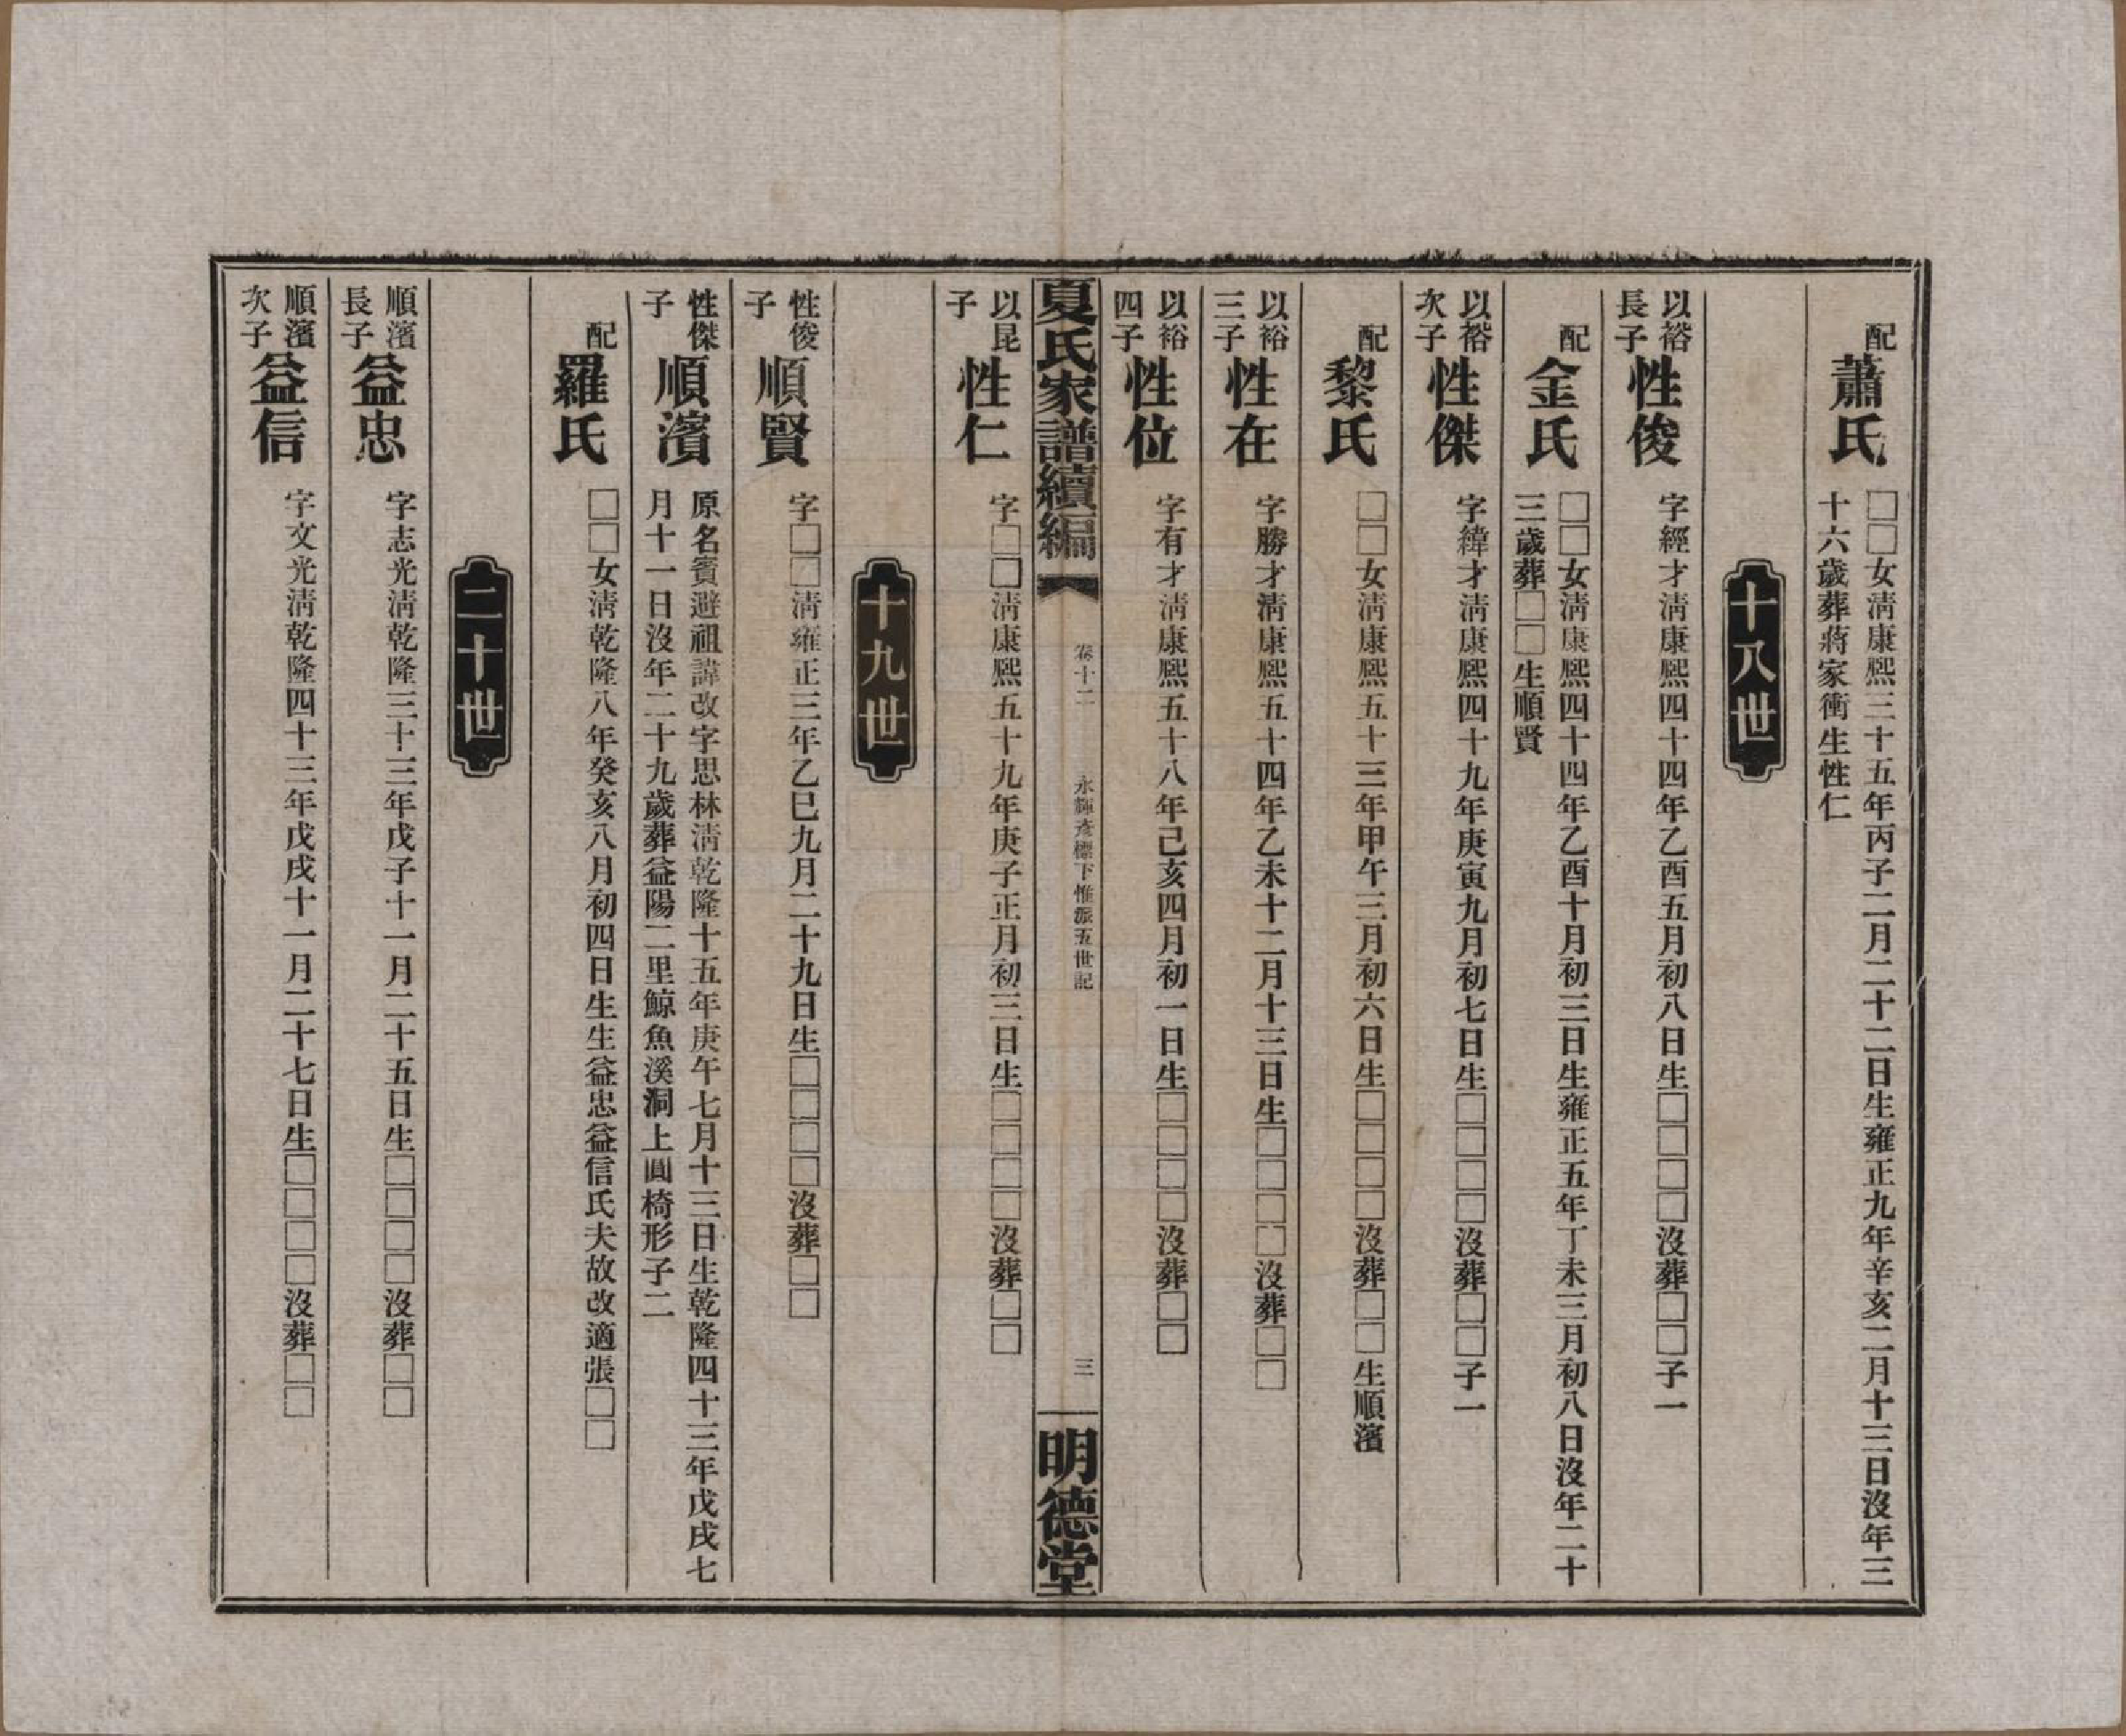 配
蕭氏
□□女淸康熙三十五年丙子二月二十二日生雍正九年辛亥二月十三日沒年三
十六歲葬蔣家衝生性仁
十八世
以裕
長子
性俊
字經才淸康熙四十四年乙酉五月初八日生□□□□沒葬□□子一
配
金氏
□□女淸康熙四十四年乙酉十月初三日生雍正五年丁未三月初八日沒年二十
三歲葬□□生順賢
以裕
次子
性傑
字緯才淸康熙四十九年庚寅九月初七日生□□□□沒葬□□子一
配
黎氏
□□女淸康熙五十三年甲午三月初六日生□□□□沒葬□□生順濱
以裕
三子
性在
字勝才淸康熙五十四年乙未十二月十三日生□□□□沒葬□□
以裕
四子
性位
字有才淸康熙五十八年己亥四月初一日生□□□□沒葬□□
夏氏家譜續編
卷十二
永輝彥標下惟派五世記
三
明德堂
以昆
子
性仁
字□□淸康熙五十九年庚子正月初三日生□□□□沒葬□□
十九世
性俊
子
順賢
字□□淸雍正三年乙巳九月二十九日生□□□□沒葬□□
性傑
子
順濱
原名賓避祖諱改字思林淸乾隆十五年庚午七月十三日生乾隆四十三年戊戌七
月十一日沒年二十九歲葬益陽二里鯨魚溪洞上圓椅形子二
配
羅氏
□□女淸乾隆八年癸亥八月初四日生生益忠益信氏夫故改適張□□
二十世
順濱
長子
益忠
字志光淸乾隆三十三年戊子十一月二十五日生□□□□沒葬□□
順濱
次子
益信
字文光淸乾隆四十三年戊戌十一月二十七日生□□□□沒葬□□